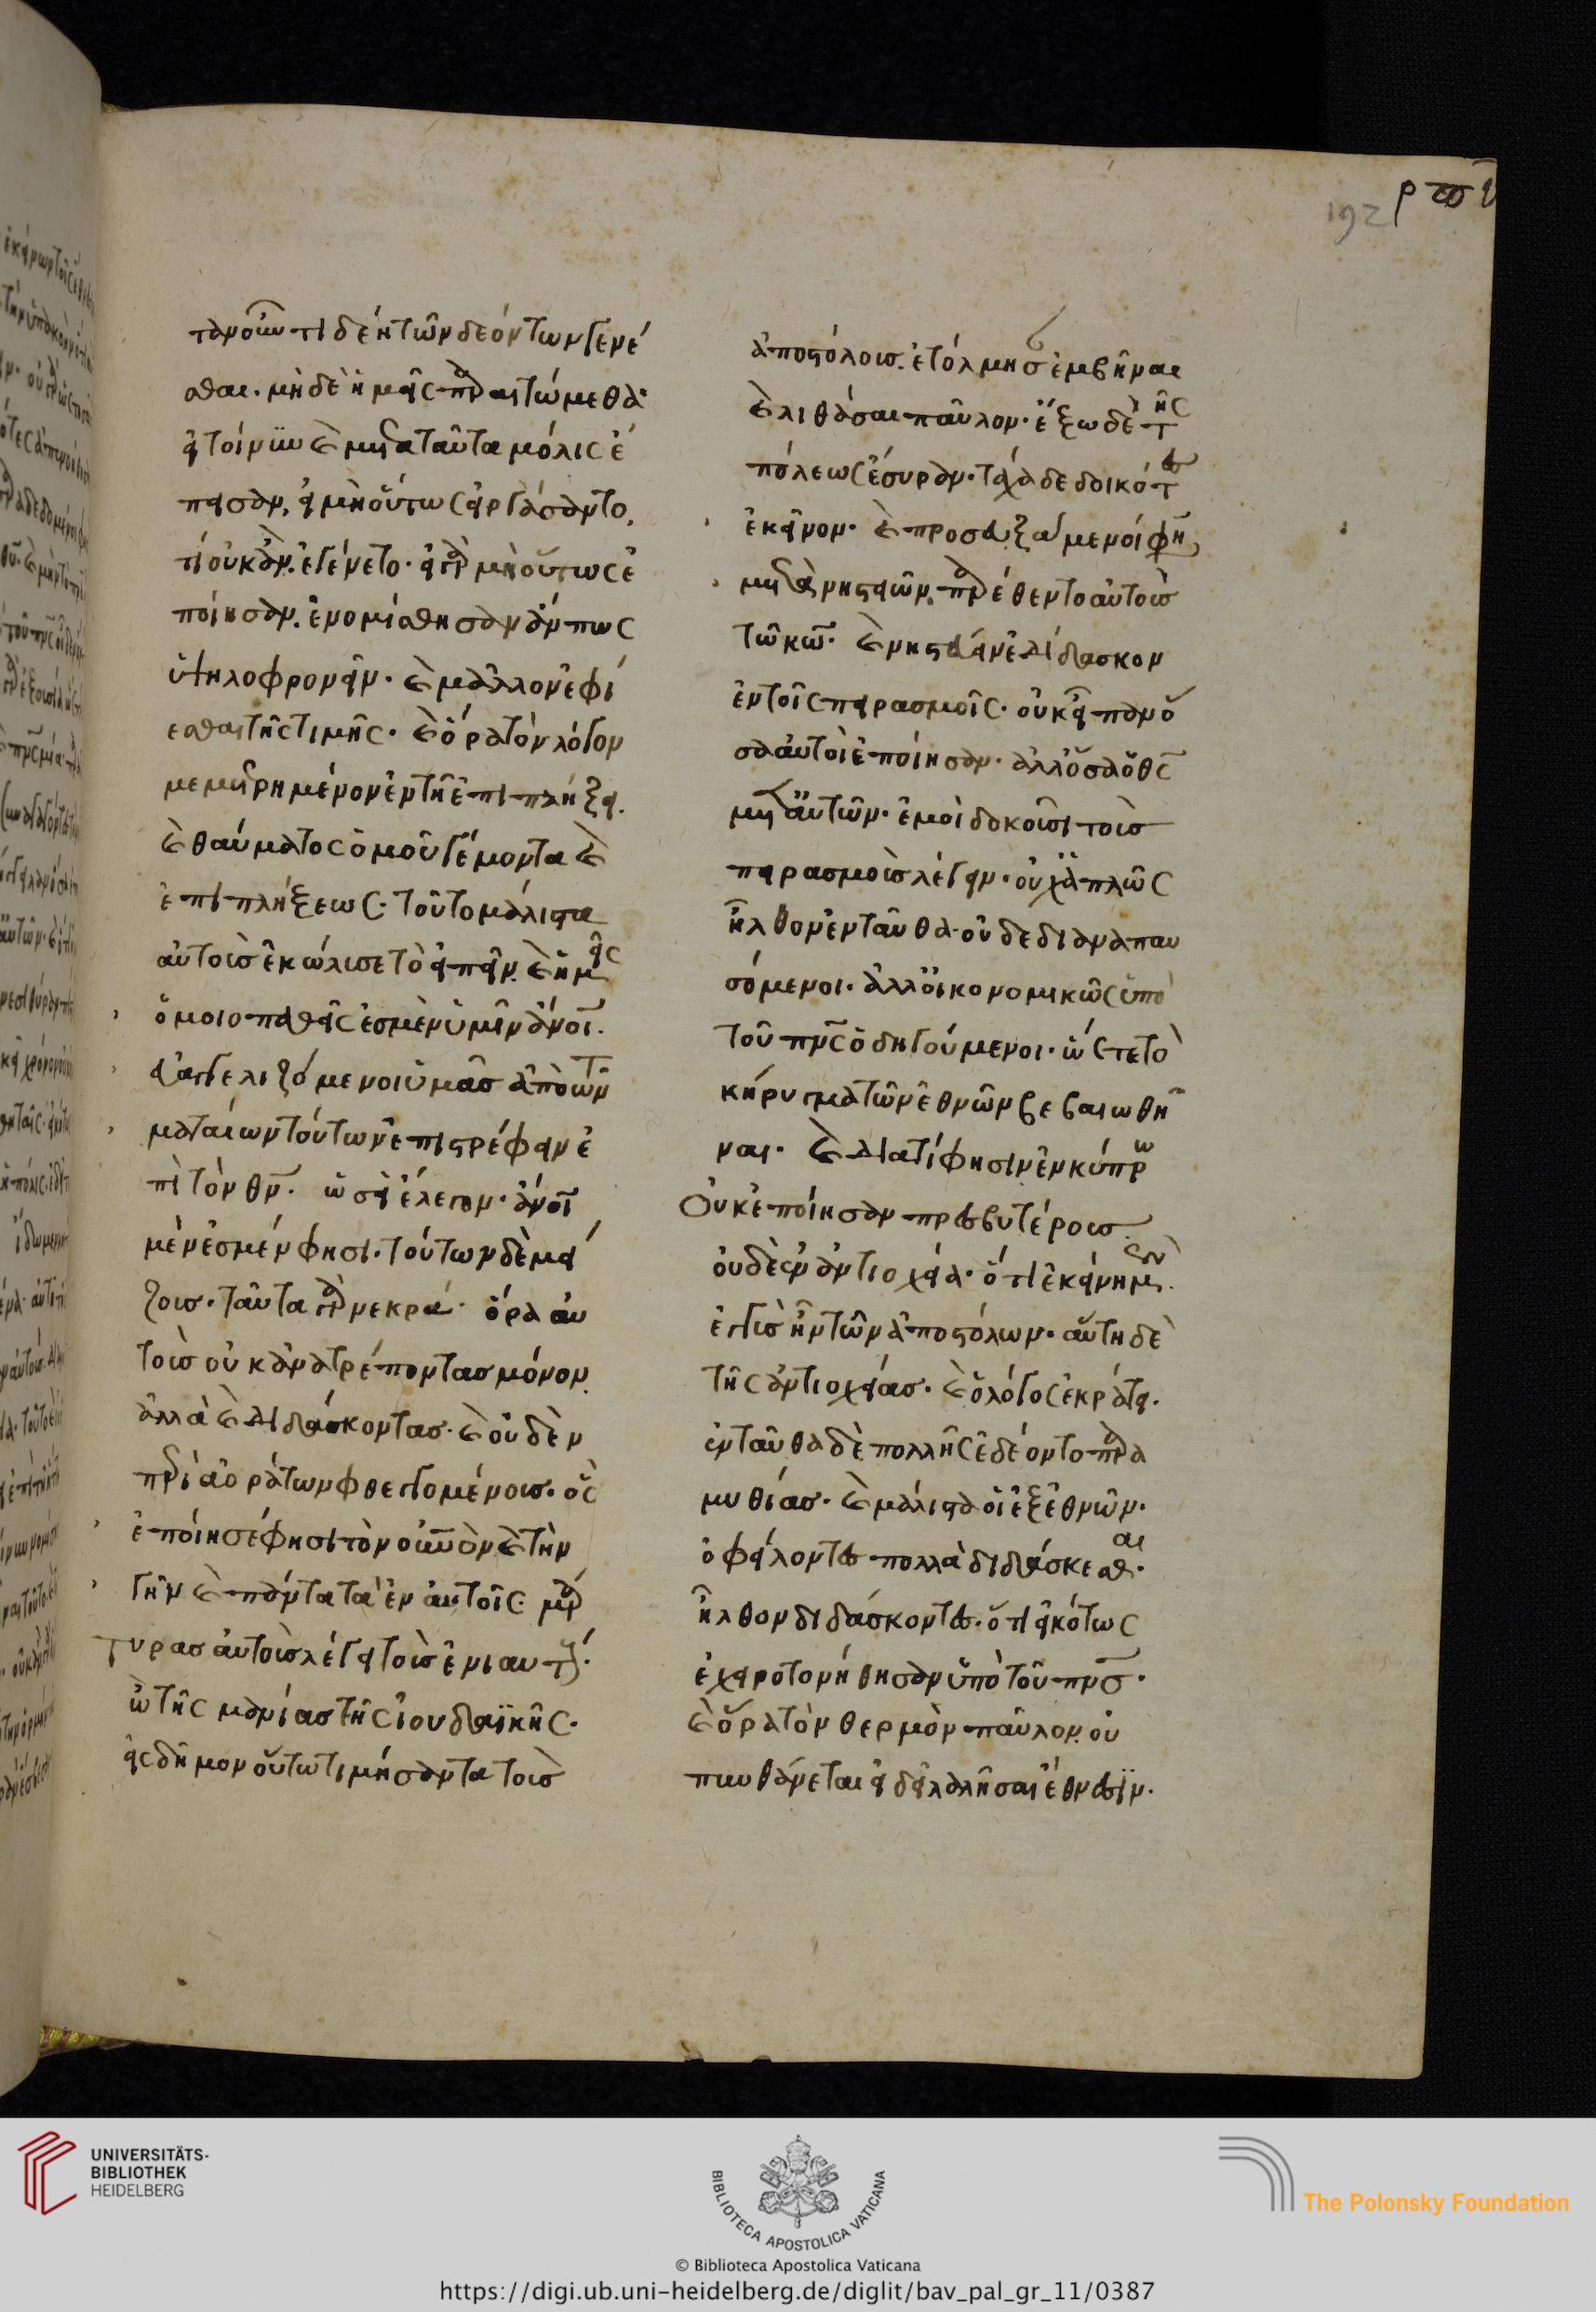 192
τι δέη τῶν δεόντων γενέ
σθαι. μηδὲ ἡμᾶς παραιτώμεθα·
εἰ τοίνυν καὶ μετὰ ταῦτα μόλις ἔ
πεισαν, εἰ μὴ οὕτως εἰργάσαντο,
τί οὐκ ἂν ἐγένετο· εἰ γὰρ μὴ οὕτως ἐ
ποίησαν. ἐνομίσθησαν ἄν πως
ὑψηλοφρονεῖν· καὶ μᾶλλον ἐφί
εσθαι τῆς τιμῆς· καὶ ὅρα τὸν λόγον
μεμετρημένον ἐν τῆ ἐπιπλήξει.
καὶ θαύματος ὁμοῦ γέμοντα καὶ
ἐπιπλήξεως· τοῦτο μάλιστα
αὐτοὺς ἐκώλυσε τὸ εἰπεῖν. καὶ ἡμεῖς
ὁμοιοπαθεῖς ἐσμὲν ὑμῖν ἄνοι.
εὐαγγελιζόμενοι ὑμᾶς ἀπὸ τῶν
ματαίων τούτων ἐπιστρέφειν ἐ
πὶ τὸν θν. ὡσεὶ ἔλεγον· ἄνοι
μὲν ἐσμέν φησι· τούτων δὲ μεί
ζους· ταῦτα γὰρ νεκρά· ὅρα αὐ
τοὺς οὐκ ἀνατρέποντας μόνον
ἀλλὰ καὶ διδάσκοντας· καὶ οὐδὲν
περὶ ἀοράτων φθεγγομένους· ὃς
ἐποίησέ φησι τὸν οὐνον καὶ τὴν
γῆν καὶ πάντα τὰ ἐν αὐτοῖς· μάρ
τυρας αὐτοὺς λέγει τοὺς ἐνιαυτούς·
ὢ τῆς μανίας τῆς ἰουδαϊκῆς·
εἰς δῆμον οὕτω τιμήσαντα τοὺς
ἀποστόλους. ἐτόλμησαν ἐμβῆναι
καὶ λιθάσαι παῦλον· ἔξω δὲ τῆς
πόλεως ἔσυραν· τάχα δεδοικότες
ἐκεῖνον· καὶ προσευξάμενοί φη
μετὰ νηστειῶν. παρέθεντο αὐτοὺς
τῶ κω· καὶ νηστεύειν ἐδίδασκον
ἐν τοῖς πειρασμοῖς· οὐκ εἶπαν ὅ
σα αὐτοὶ ἐποίησαν· ἀλλ' ὅσα ὁ θς
μετ' αὐτῶν· ἐμοὶ δοκοῦσι τοὺς
πειρασμοὺς λέγειν· οὐχ ἁπλῶς
ἦλθον ἐνταῦθα· οὐδὲ διαναπαυ
σόμενοι· ἀλλ' οἰκονομικῶς ὑπὸ
τοῦ πνς ὁδηγούμενοι· ὥστε τὸ
κήρυγμα τῶν ἐθνῶν βεβαιωθῆ
ναι· καὶ διατί φησιν ἐν κύπρω
Οὐκ ἐποίησαν πρεσβυτέρους.
οὐδὲ ἐν ἀντιοχεία· ὅτι ἐκείνη μὲν
ἐγγὺς ἦν τῶν ἀποστόλων· αὕτη δὲ
τῆς ἀντιοχείας· καὶ ὁ λόγος ἐκράτει·
ἐνταῦθα δὲ πολλῆς ἐδέοντο παρα
μυθίας· καὶ μάλιστα οἱ ἐξ ἐθνῶν·
ὀφείλοντες πολλὰ διδάσκεσθαι·
ἦλθον διδάσκοντες· ὅτι εἰκότως
ἐχειροτονήθησαν ὑπὸ τοῦ πνς·
καὶ ὅρα τὸν θερμὸν παῦλον. οὐ
πυνθάνεται εἰ δεῖ λαλῆσαι ἔθνεσιν·
UNIVERSITÄTS-
BIBLIOTHEK
HEIDELBERG
BIBLIOTECA APOSTOLICA VATICANA
The Polonsky Foundation
© Biblioteca Apostolica Vaticana
https://digi.ub.uni-heidelberg.de/diglit/bav_pal_gr_11/0387